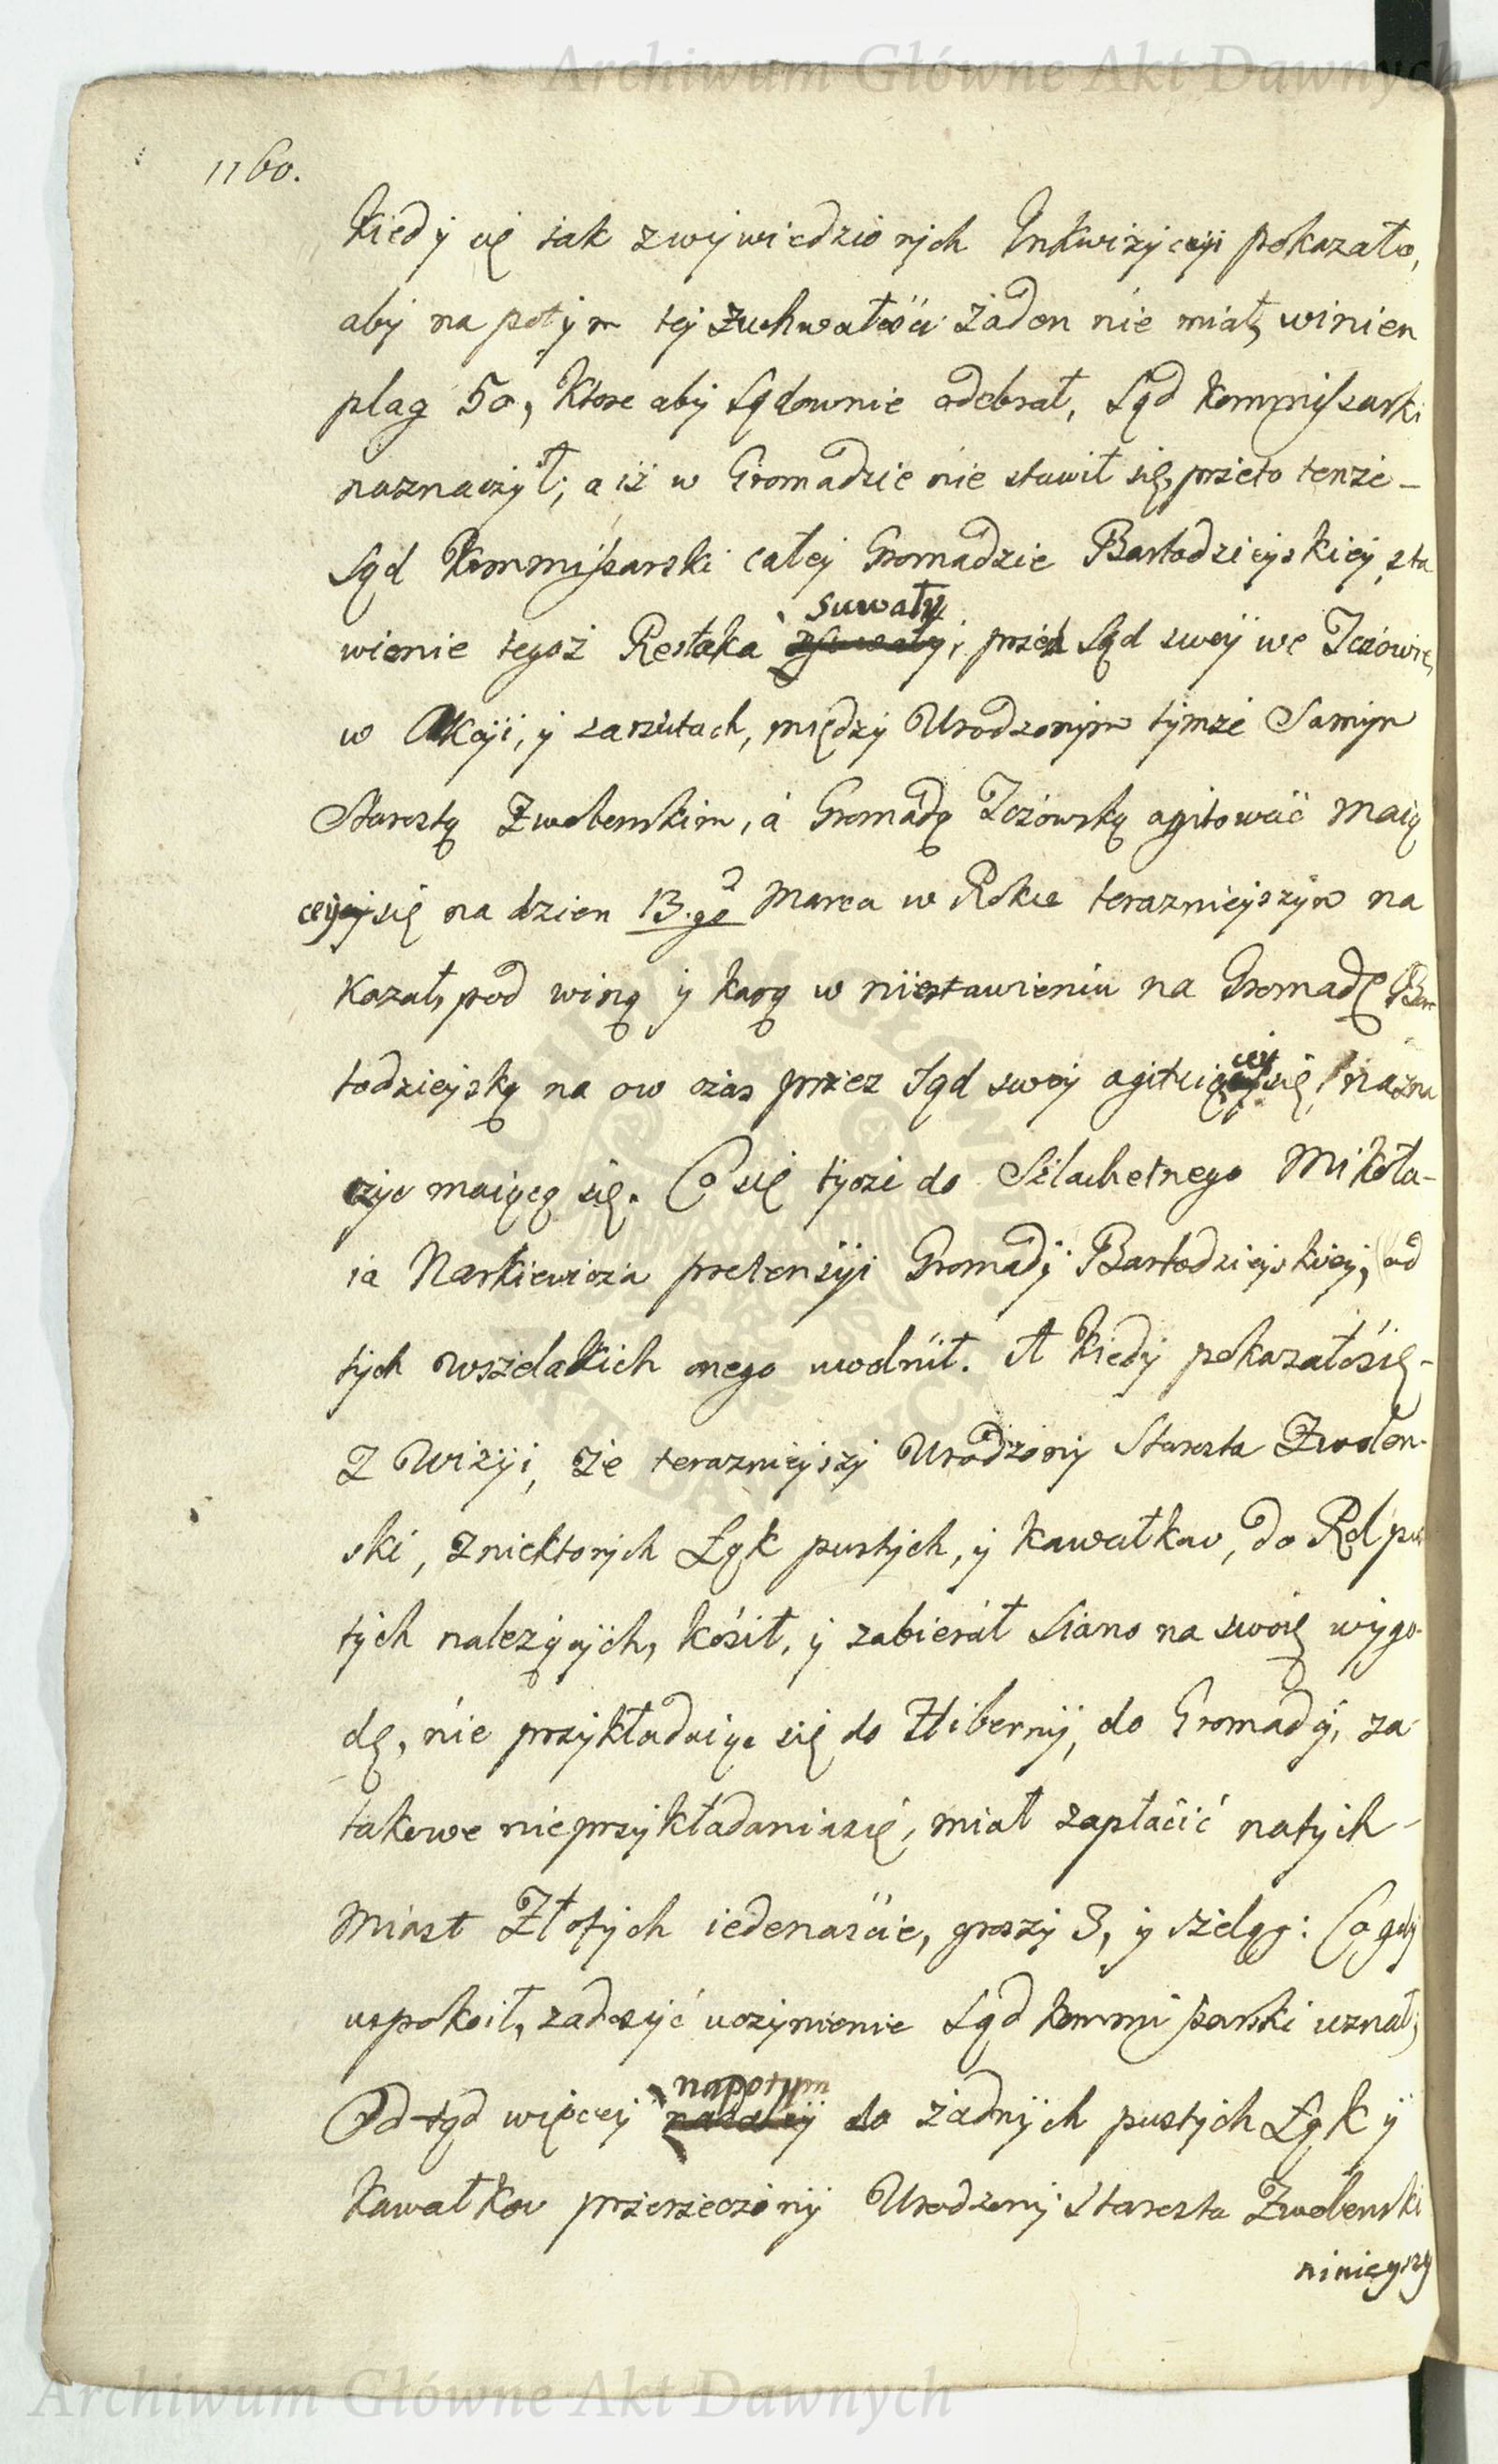 Archiwum Główne Akt Dawnych
1160.
Kiedy się tak z wywiedzionych Inkwizycyi pokazało,
aby na potym tej zuchwałości żaden nie miał, winien
plag 50, Ktore aby sądownie odebrał, Sąd Kommissarski
naznaczył; a iż w Gromadzie nie stawił się, przeto tenże
Sąd Kommissarski całej Gromadzie Bartodzieyskiey sta
wienie tegoż Restaka suwały, przed Sąd swoy we Jczowie,
w Akcyi, y zarzutach, między Urodzonym tymże Samym
Starostą Zwolenskim, á Gromadą Jczowską agitować maią
cey się na dzien 13.go Marca w Roku teraznieyszym na
kazał, pod winą y karą w niestawieniu na Gromadę Bar
todzieyską na ow czas przez Sąd swoy agituiącey się, nazna
czyc maiącą się. Co się tycze do Szlachetnego Mikoła-
ia Narkiewicza pretensyi Gromady Bartodzieyskiey, od
tych wszelakich onego uwolnił. A kiedy pokazało się
z Wizyi, że teraznieyszy Urodzony Starosta Zwolen-
ski, z niektorych Łąk pustych, y kawałkow, do Rol pus
tych nalezących, kosił, y zabierał Siano na swoię wygo-
dę, nie przykładaiąc się do Hiberny, do Gromady, za
takowe nieprzykładania się, miał zapłacić natych-
miast Złotych iedenaście, groszy 3, y szeląg: Co gdy
uspokoił, zadosyć uczynienie Sąd Kommissarski uznał;
Od-tąd więcey napotym do żadnych pustych Łąk y
Kawałkow przerzeczony Urodzony Starosta Zwolenski
ninieyszy
Archiwum Główne Akt Dawnych